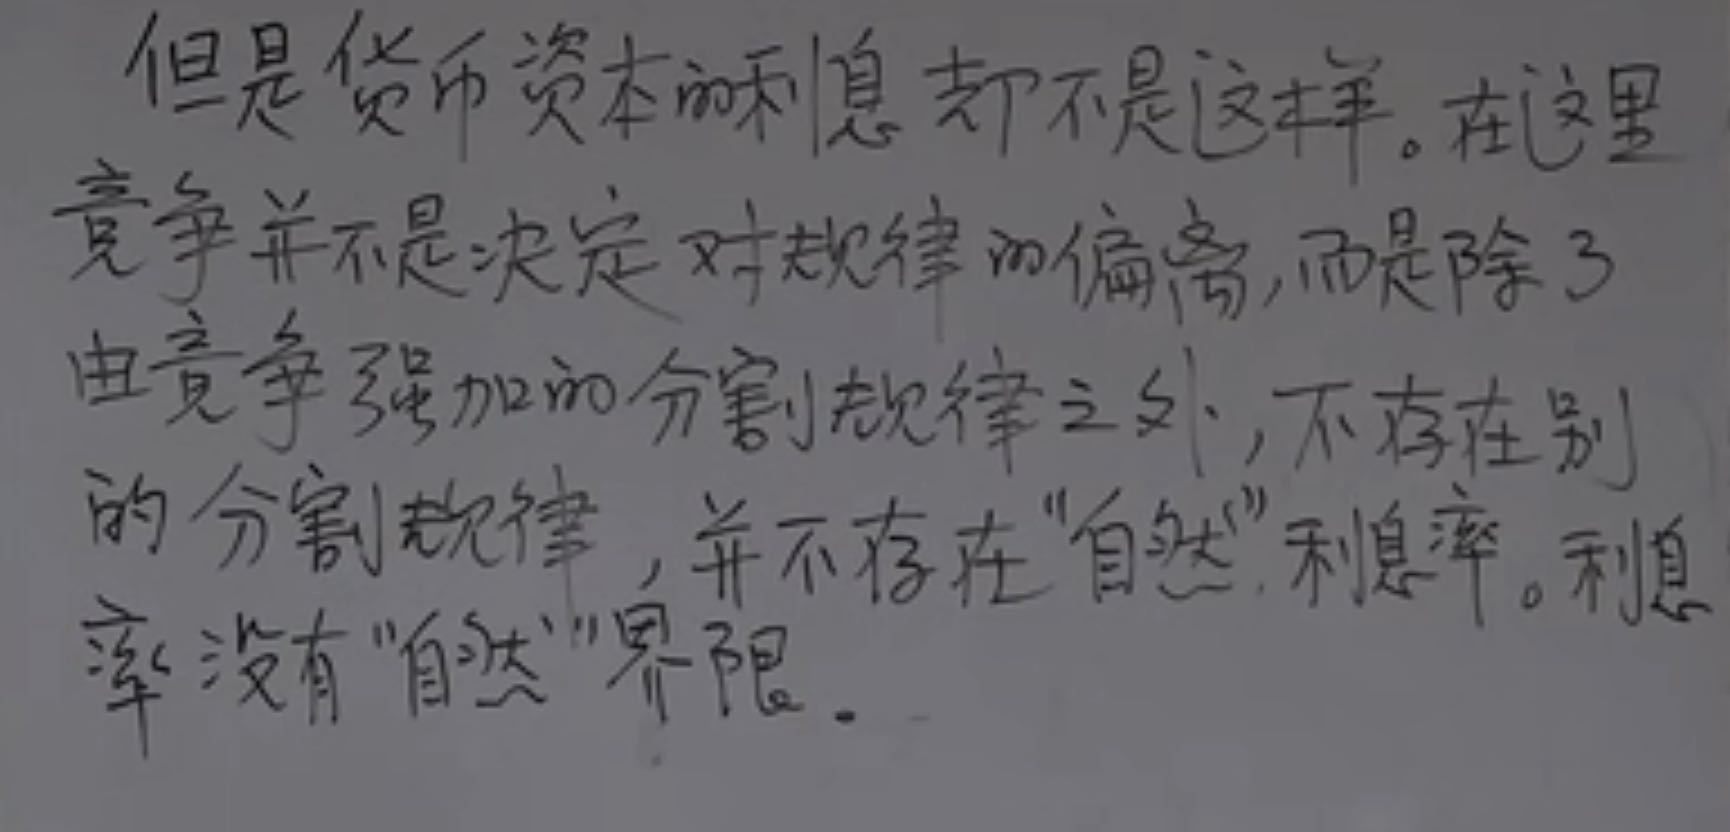 但是货币资本的利息却不是这样。在这里
竞争并不是决定对规律的偏离,而是除了
由竞争强加的分割规律之外,不存在别
的分割规律,并不存在“自然”利息率。利息
率没有“自然”界限.